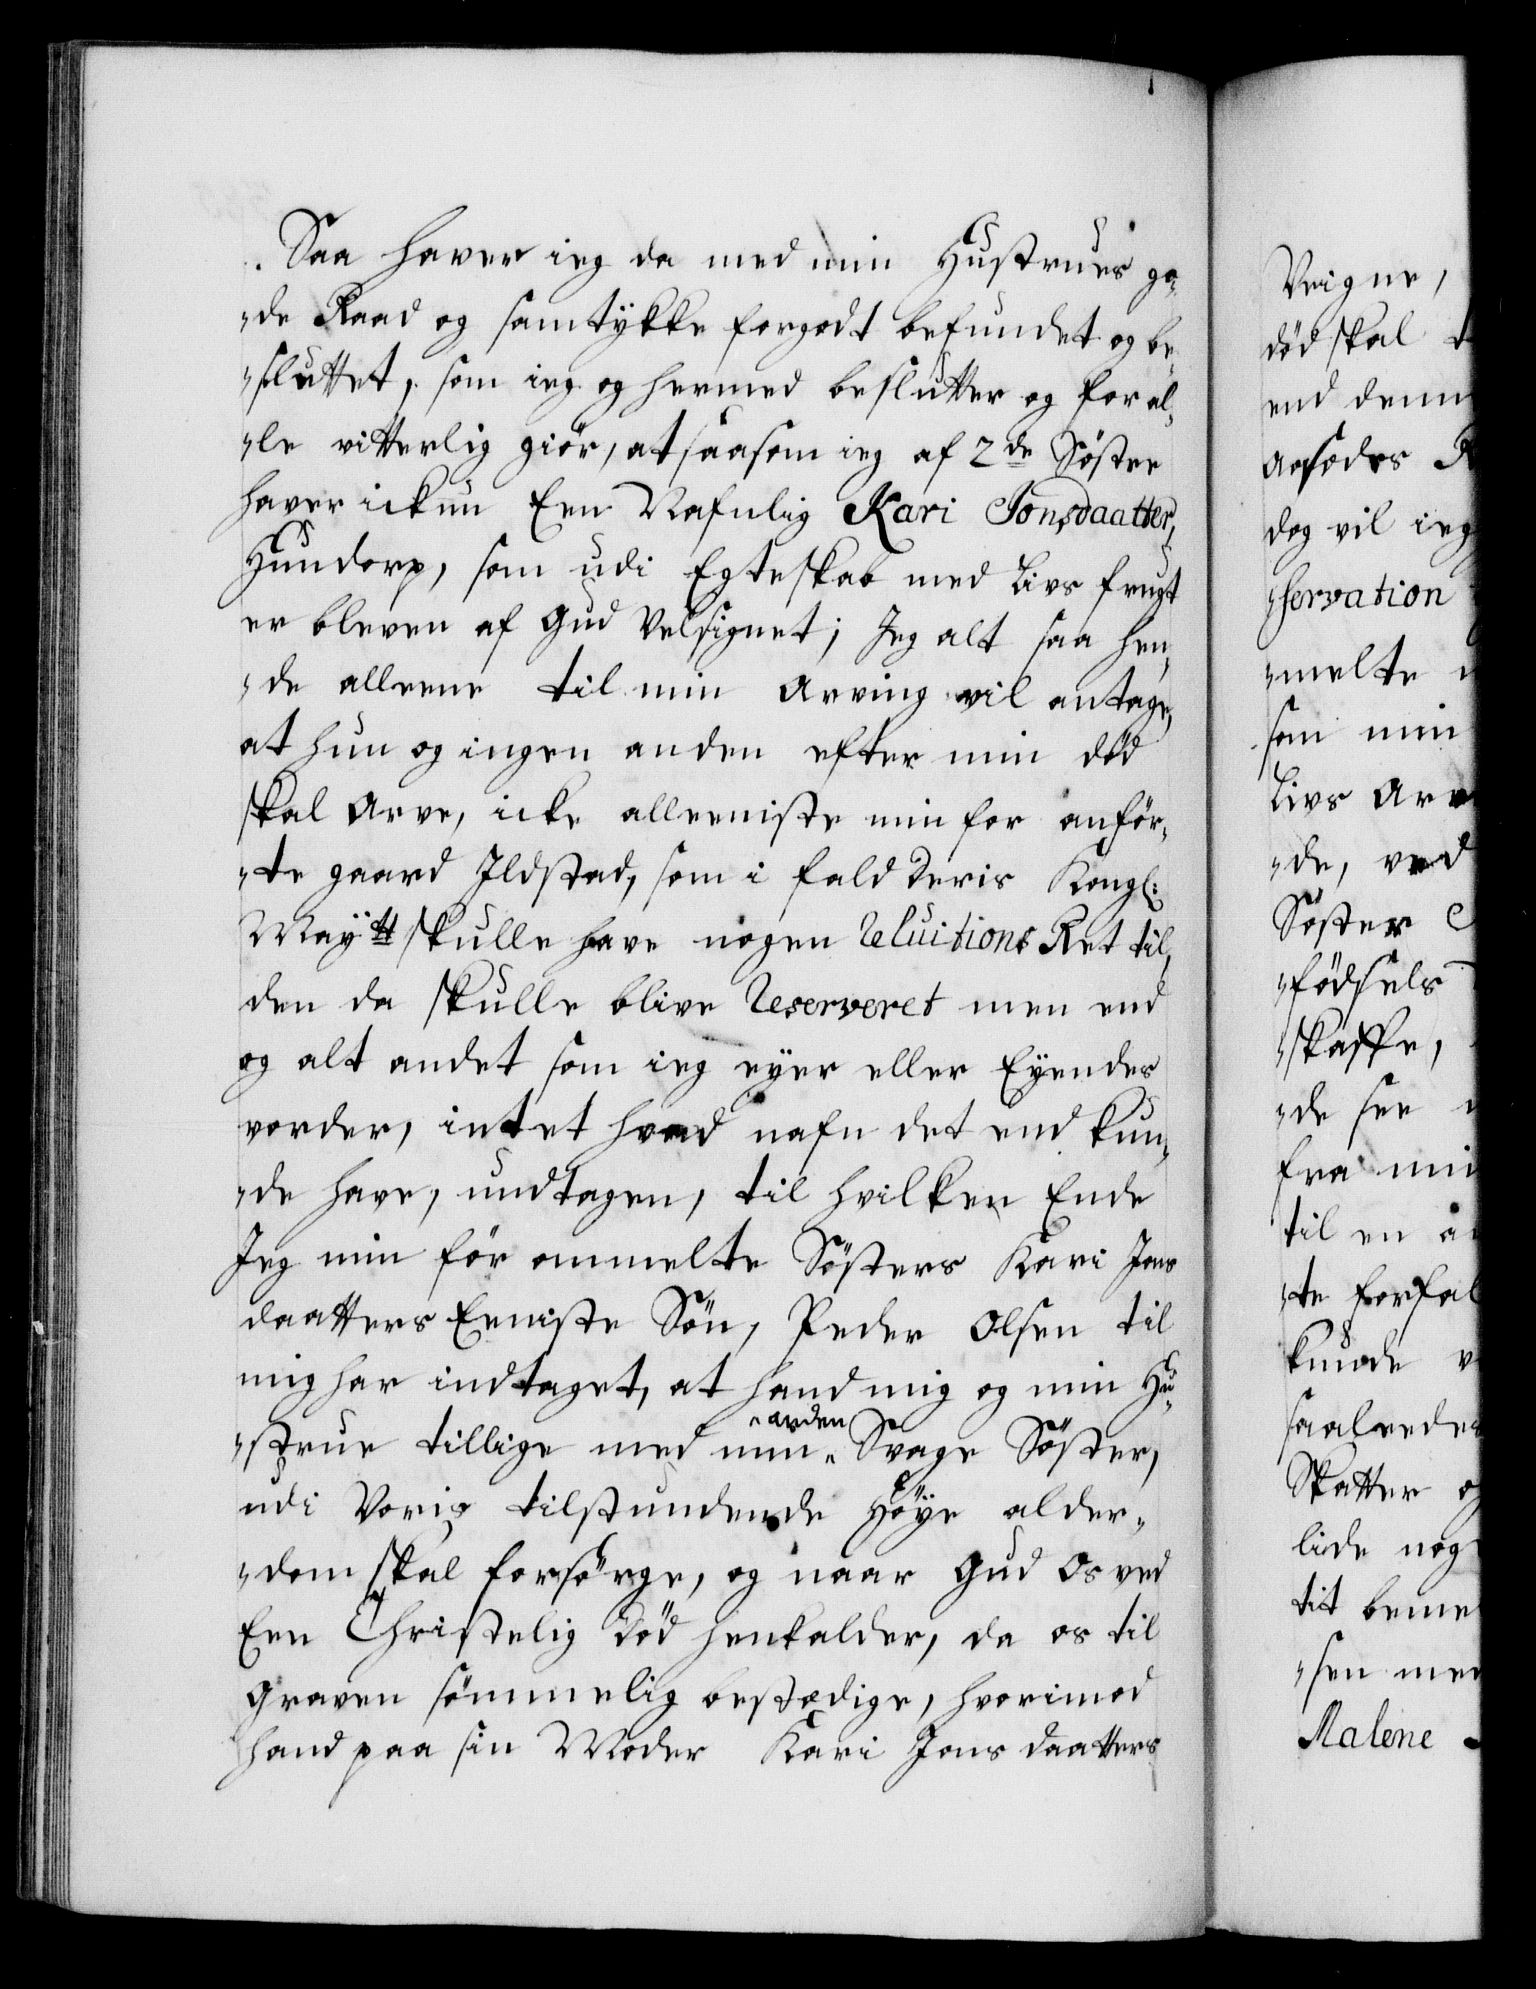 Saa haver ieg da med min Hustrues go¬
"de Raad og samtykke forgodt befundet og be¬
"sluttet, som ieg og hermed beslutter og for al¬
"le vitterlig giör, at saasom ieg af 2de Söstre
haver ickun Een Nafnlig Kari Jonsdaatter,
Hundorp, som udi Egteskab med Livs frugt
er bleven af Gud Velsignet; Jeg alt saa hen¬
"de alleene til min Arving vil antage,
at hun og ingen anden efter min död
skal Arve, icke alleeniste min for anför¬
"te gaard Ildstad, som i fald Deris Kongl:
Maytt skulle have nogen Reluitions Ret til,
den da skulle blive Reserveret men end
og alt andet som ieg eyer eller Eyendes
vorder, intet hvad nafn det end kun¬
"de have, undtagen, til hvilken Ende
Jeg min för ommelte Sösters Kari Jons
daatters Eeniste Sön, Peder Olsen til
mig har indtaget, at hand mig og min Hu¬
"strue tillige med min anden Svage Söster,
udi Voris tilstundende Höye alder¬
"dom skal forsörge, og naar Gud Os ved
Een Christelig Död henkalder, da os til
Graven sömmelig bestædige, hvorimod
hand paa sin Moder Kari Jons daatters
Veigne,
död skal
end denn
Aasædes
dog vil ieg
"servation
"melte
som min
Livs Arv
"de, ved
Söster
"födsels
"skaffe,
"de see
fra min
til en
"te forfal
kunde
saaleedes
Skatter og
lide nog
tit beme
"sen med
Malene